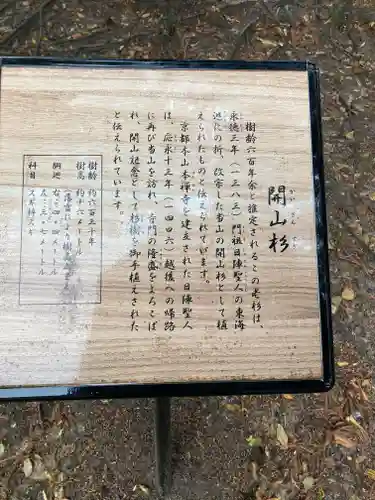 開山杉
かいざんすぎ
樹齢六百年余と推定されるこの老杉は、
永徳三年（一三八三）門祖日陣聖人の東海
巡化の折、改宗した当山の開山杉として植
えられたものと伝えられています。
京都本山本禅寺を建立された日陣聖人
は、応永十三年（一四〇六）越後への帰路、
に再び当山を訪れ、寺門の隆盛をよろこば
れ、開山記念として杉枝を御手植えされた
と伝えられています。
樹齢 約六百三十年
樹高 約十六メートル
（落雷により樹
胴廻 右 四メートル
左 三・七メートル
科目 スギ科スギ